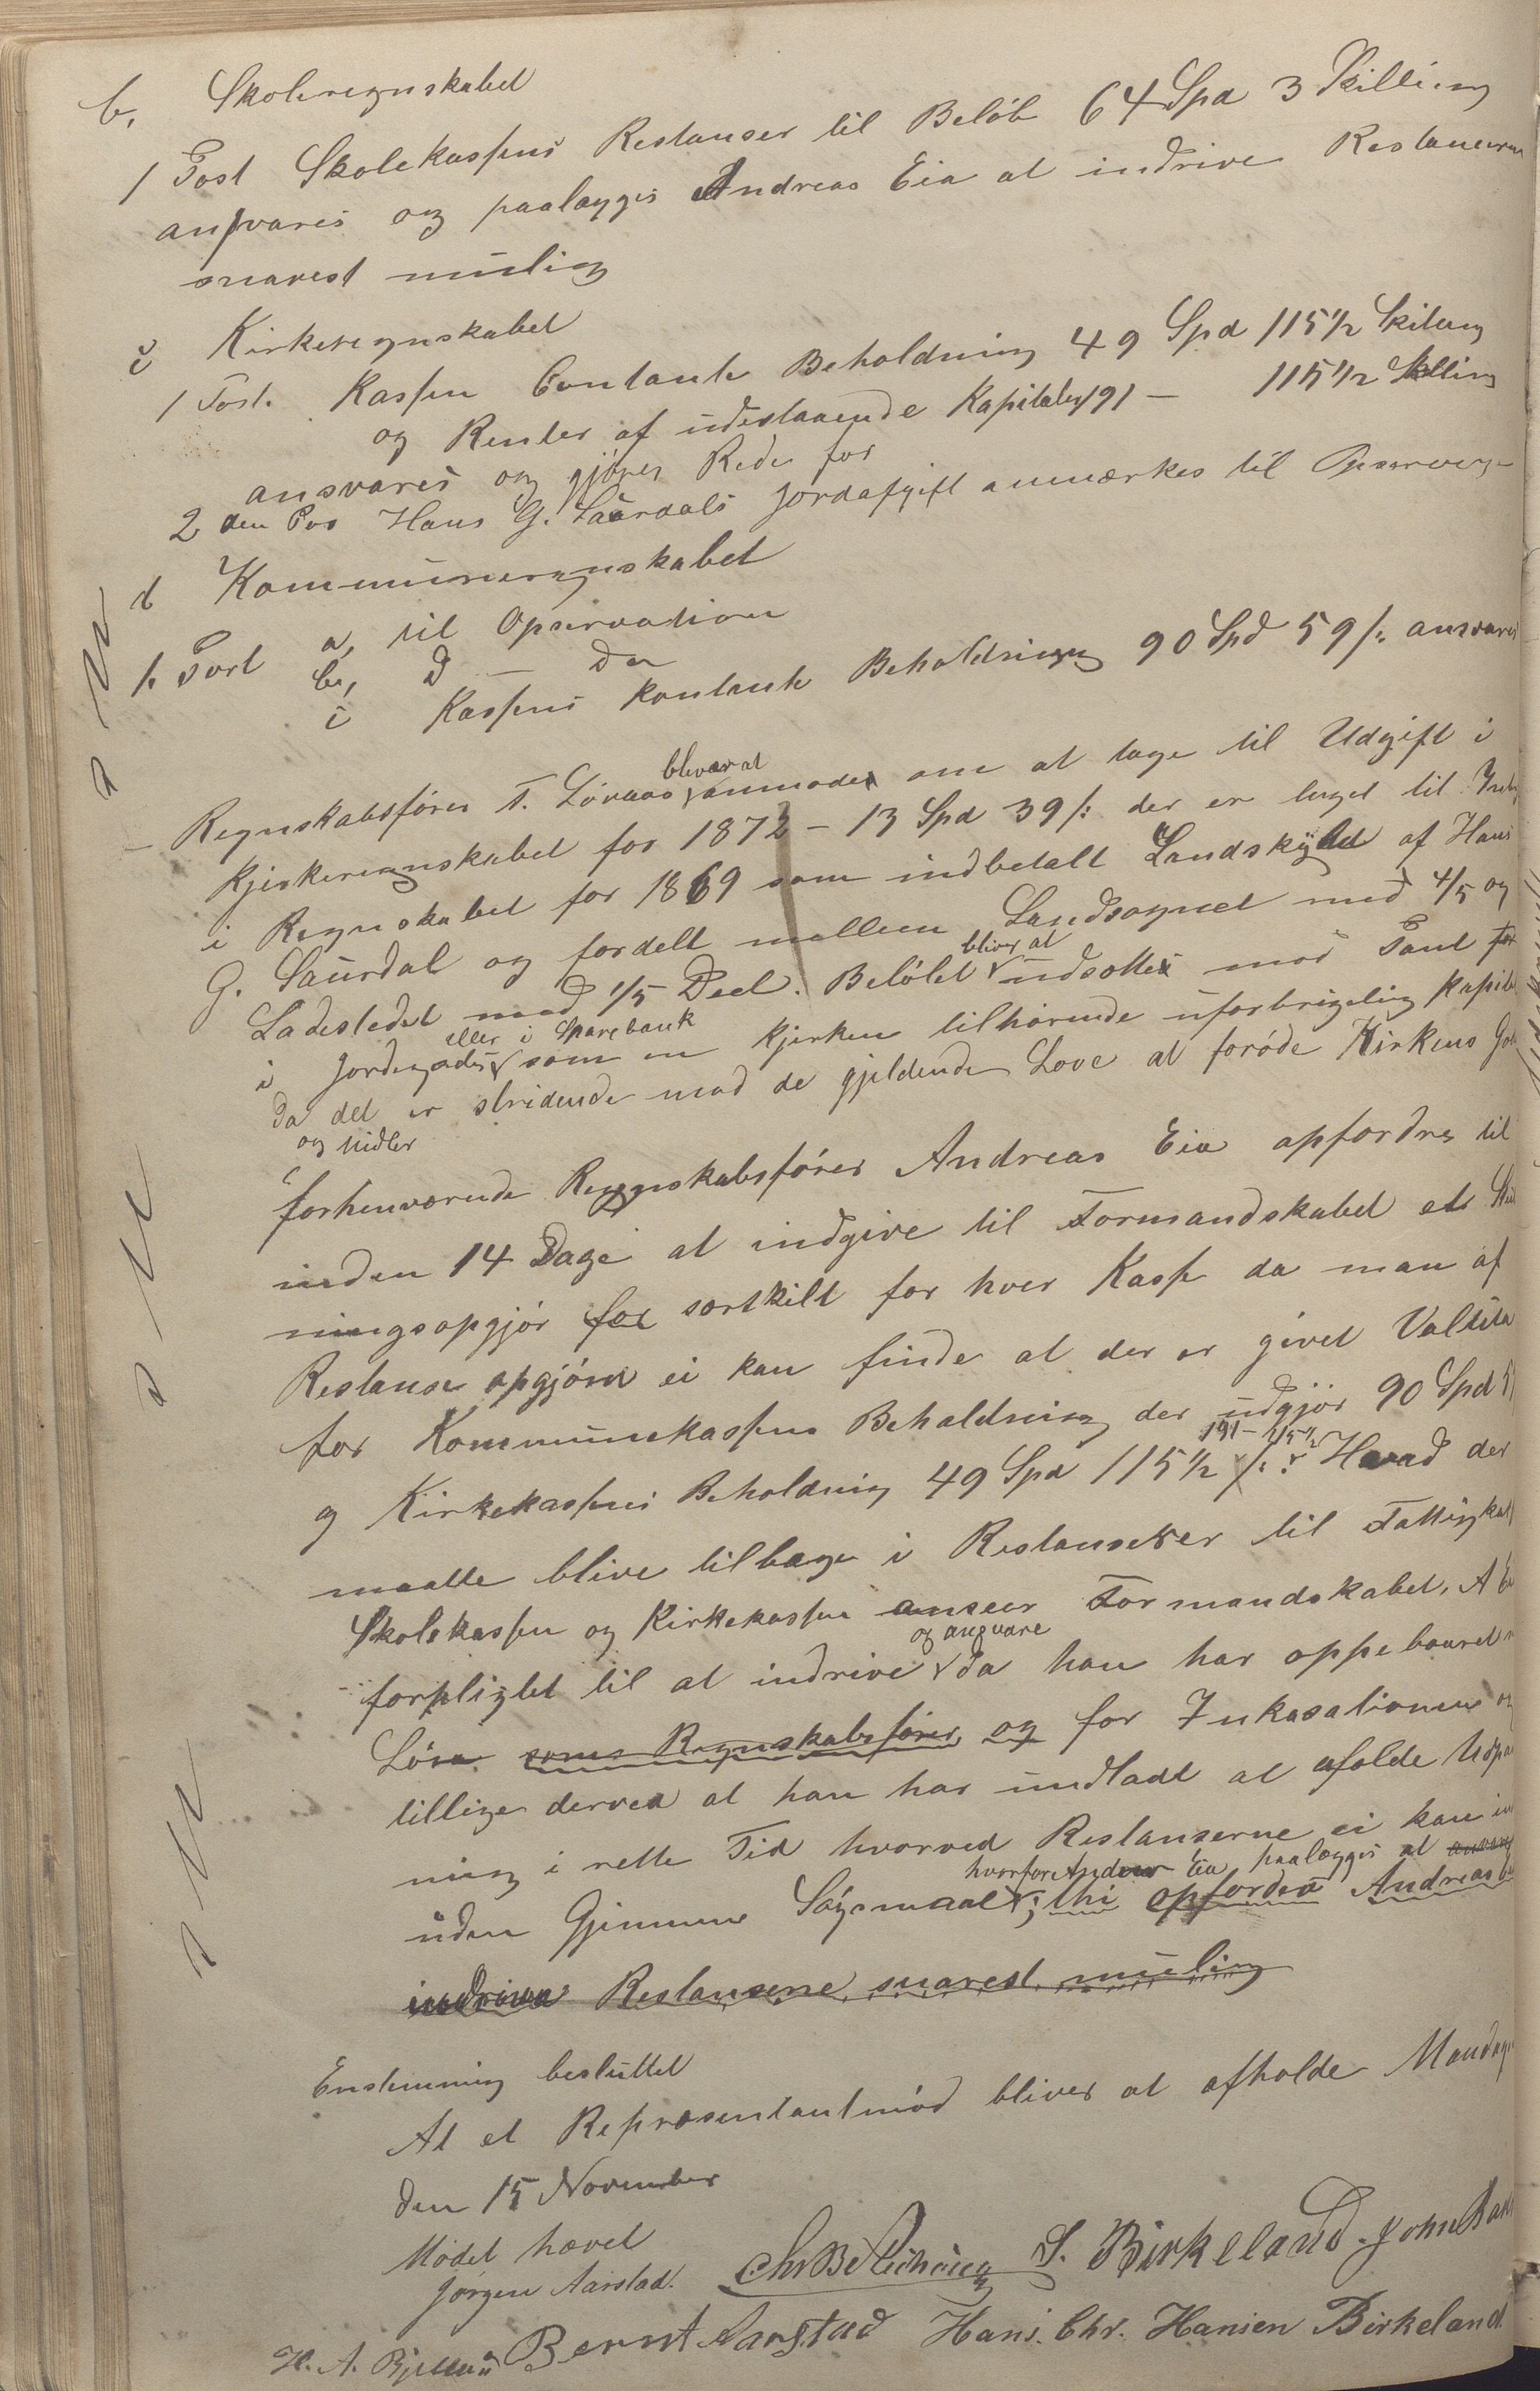 b, Skoleregnskabet
1 Post Skolekassens Restanser til Beløb 64 Spd 3 Skilling
ansvares og paalægges Andreas Eia at indrive Restanserne
snarest mulig
c Kirkeregnskabet
1 Post. Kassen Contante Beholdning 49 Spd 115 1/2 Skilling
og Renter af udestaaende Kapitaler 191 — 115 1/2 Skilling
ansvares og gjøres Rede for
2 den Pos Hans G. Saurdals Jordafgift anmærkes til Opserva
d Kommuneregnskabet
1. Post a, til Opservation
b, d — do
c Kassens kontante Beholdning 90 Spd 59 /: ansvares
— Regnskabsfører T. Løvaas bliver at anmode om at tage til Udgift i
Kjerkeregnskabet for 1872 – 13 Spd 39 /: der er taget til Indt
i Regnskabet for 1869 som indbetalt Landskyld af Hans
G. Saurdal og fordelt mellem Landsognet med 4/5 og
Ladestedet med 1/5 Deel. Beløbet bliver at udsættes mod Pant for
i Jordegods eller i Sparebank som en Kjerken tilhørende uforbrigelig Kapit
da det er stridende mod de gjeldende Love at forøde Kirkens Go
og Midler
forhenværende Regnskabsfører Andreas Eia opfordres til
inden 14 Dage at indgive til Formandskabet et
ningsopgjør for særskilt for hver Kasse da man af
Restanse opgjøret ei kan finde at der er givet Valuta
for Kommunekassens Beholdning der udgjør 90 Spd 5
og Kirkekassens Beholdning 49 Spd 115 1/2 /: 191 – 115 1/2 Hvad der
maatte blive tilbage i Restanser til Fattigkas
Skolekassen og Kirkekassen anseer Formandskabet, A Ei
forpligtet til at indrive og ansvare da han har oppebaaret
Løn som Regnskabsfører og for Inkasationen og
tillige derved at han har undladt at afolde Udpa
ning i rette Tid hvorved Restanserne ei kan in
uden Gjennem Søgsmaal hvorfor Andreas Eia paalægges at ansvare ; thi opfordres Andreas
indrive Restanserne snarest mulig
Enstemmig besluttet
At et Repræsentantmød bliver at afholde Mandag
den 15 November
Mødet hævet
Jørgen Aarstad. S. Birkeland. John
H. A. Bernt Aarstad Hans Chr. Hansen Birkeland